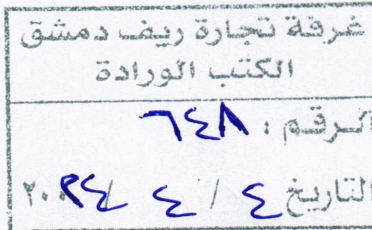 غرفة تجارة ريف دمشق
الكتب الورادة
الرقم : ٦٤٨
التاريخ ٤ / ٤ / ٢٠٢٤